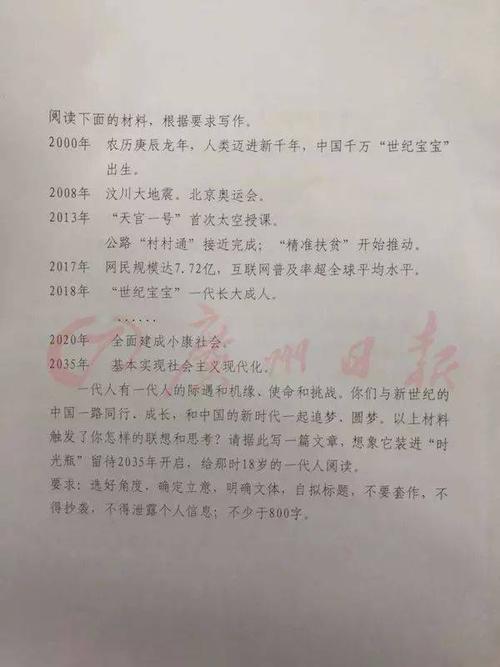 阅读下面的材料，根据要求写作。
2000年 农历庚辰龙年，人类迈进新千年，中国千万“世纪宝宝”
出生。
2008年 汶川大地震。北京奥运会。
2013年 “天宫一号”首次太空授课。
公路“村村通”接近完成；“精准扶贫”开始推动。
2017年 网民规模达7.72亿，互联网普及率超全球平均水平。
2018年 “世纪宝宝”一代长大成人。
……
2020年 全面建成小康社会。
2035年 基本实现社会主义现代化。
一代人有一代人的际遇和机缘、使命和挑战。你们与新世纪的
中国一路同行、成长，和中国的新时代一起追梦、圆梦。以上材料
触发了你怎样的联想和思考？请据此写一篇文章，想象它装进“时
光瓶”留待2035年开启，给那时18岁的一代人阅读。
要求：选好角度，确定立意，明确文体，自拟标题，不要套作，不
得抄袭，不得泄露个人信息；不少于800字。
广州日报